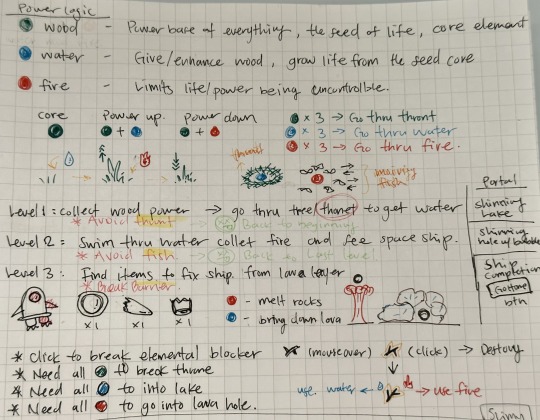 Power logic
wood - Power base of everything, the seed of life, core element
water - Give/enhance wood, grow life from the seed core
fire - Limits life/power being uncontrollble.
core Power up. power down
x 3 → Go thru thront
x 3 → Go thru water
x 3 → Go thru fire.
+ +
thront
moving fish
Portal
Level 1: collect wood power → go thru tree thonet to get water
* Avoid thont Back to beginning
Shinning Lake
Level 2: Swim thru water collet fire and fee space ship.
* Avoid fish Back to Last level
shinning hole w/ bubble
Level 3: Find items to fix ship. from lava layer
* Break Barrier
Ship Completion
Go home
btn
x1 x1 x1
- melt rocks
- bring down lava
* Click to break elemental blocker
(mouseover) (click) → Destroy
* Need all to break throne
* Need all to into lake
use water ← → use fire
* Need all to go into lava hole.